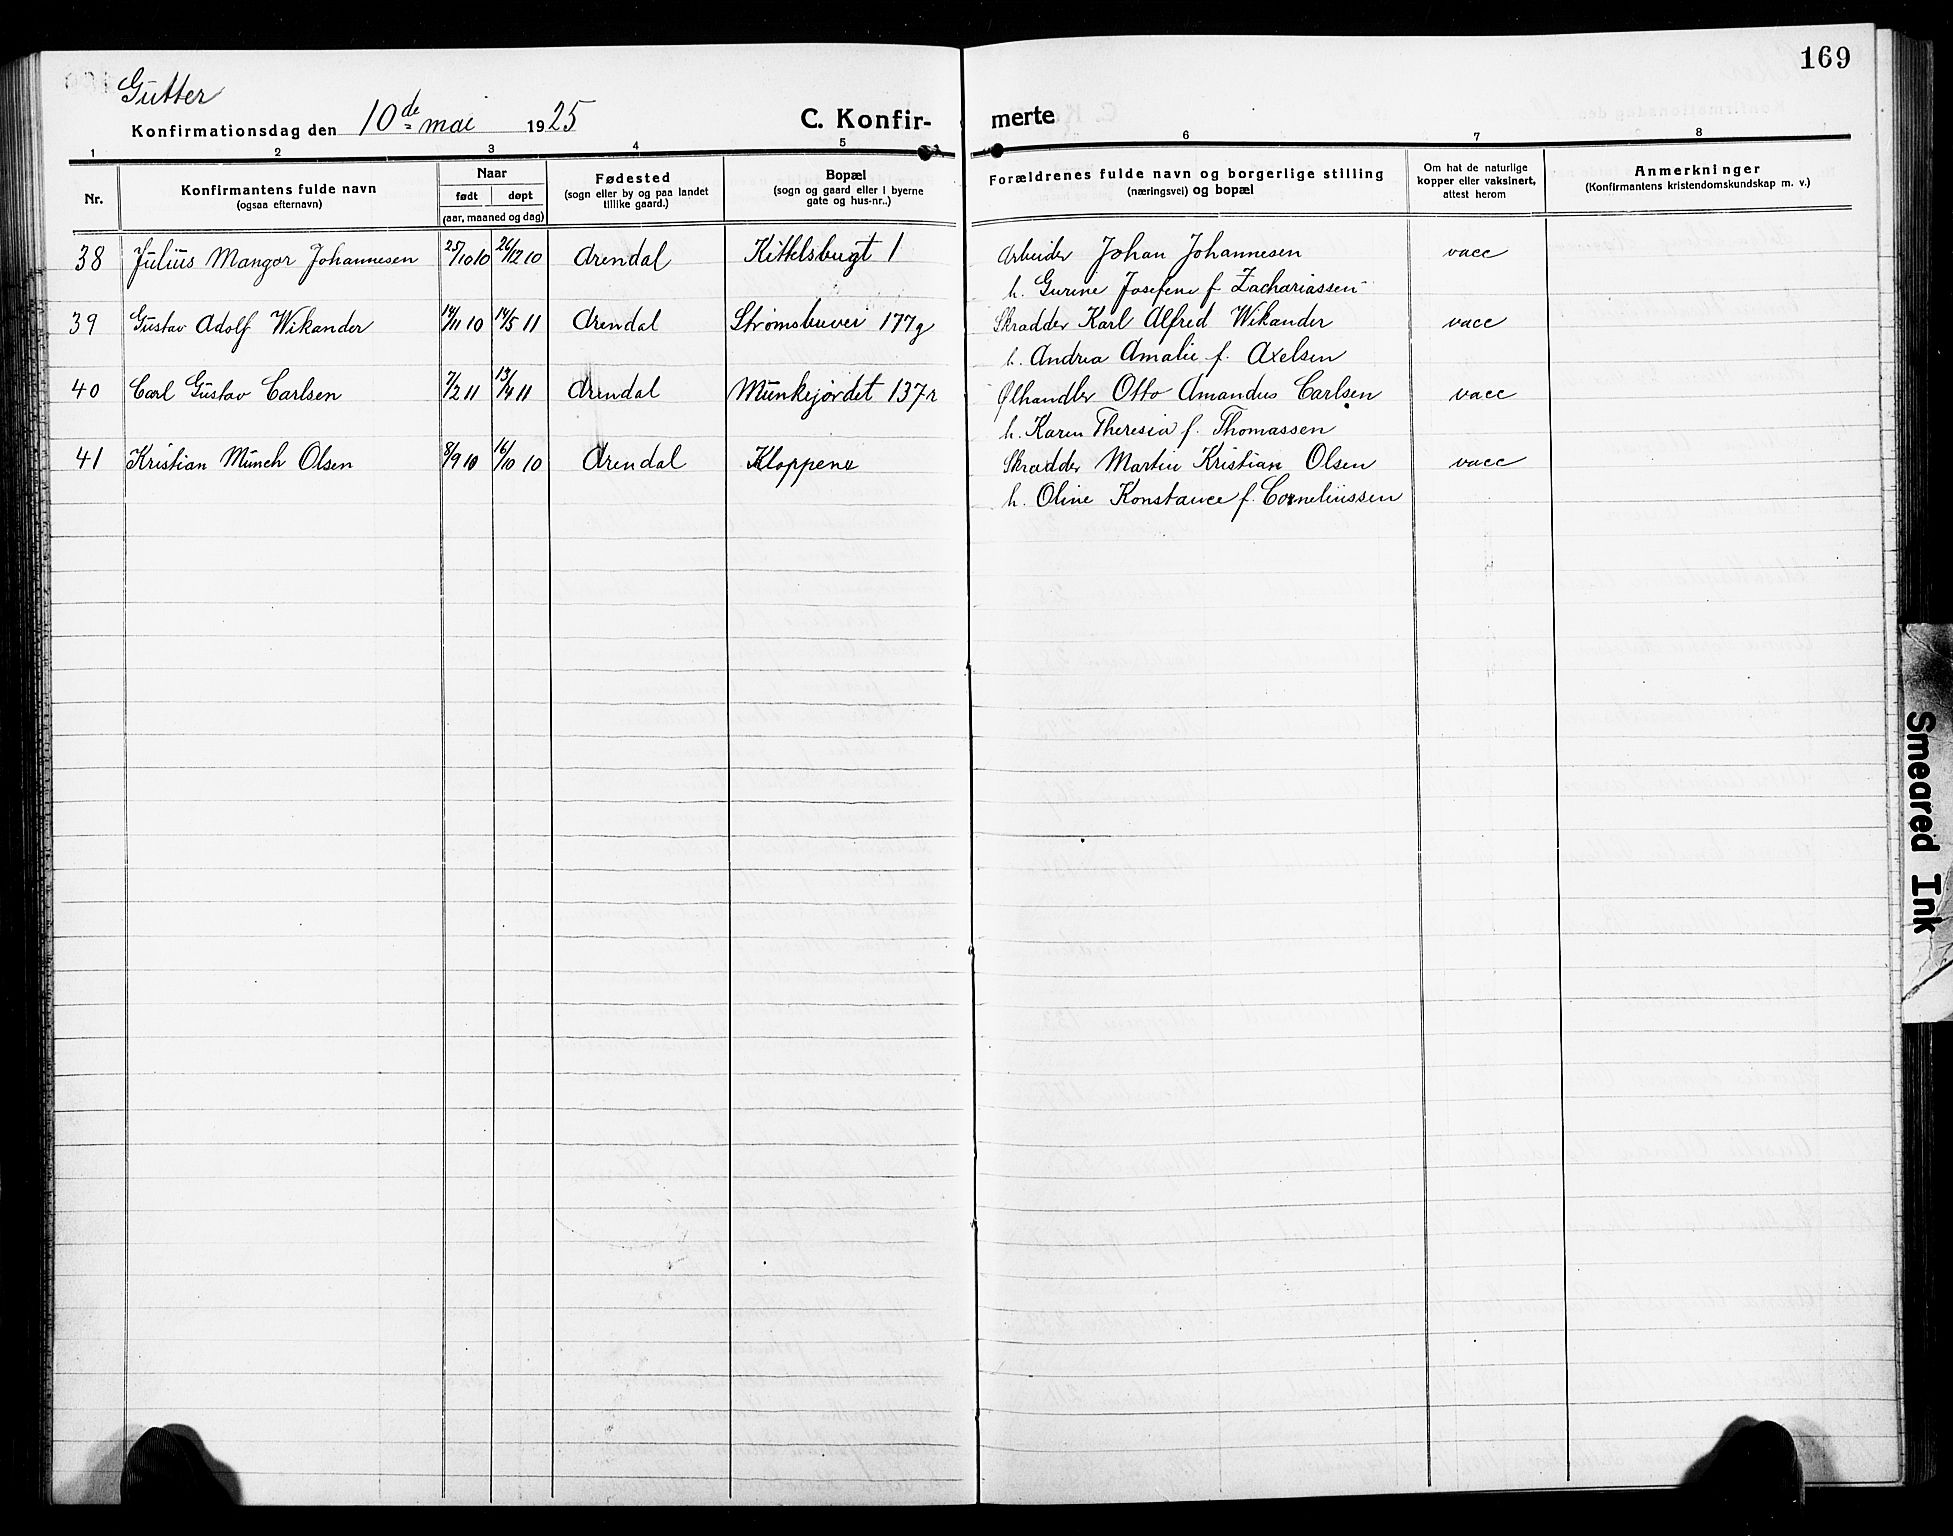 169
Gutter
Konfirmationsdag den 10de mai 1925
C. Konfir-
merte
1 2 3 4 5 6 7 8
Nr.
Konfirmantens fulde navn
(ogsaa efternavn)
Naar
født døpt
(aar, maaned og dag)
Fødested
(sogn eller by og paa landet
tillike gaard.)
Bopæl
(sogn og gaard eller i byerne
gate og hus-nr..)
Forældrenes fulde navn og borgerlige stilling
(næringsvei) og bopæl
Om hat de naturlige
kopper eller vaksinert,
attest herom
Anmerkninger
(Konfirmantens kristendomskundskap m. v.)
38 Julius Mangor Johannesen 25/10 10 26/12 10 Arendal Kittelsbugt 1 Arbeider Johan Johannesen vacc
h. Gurine Josefine f. Zachariassen
39 Gustav Adolf Wikander 14/11 10 14/5 11 Arendal Strømsbuvei 177g Skrædder Karl Alfred Wikander vacc
h. Andrea Amalie f. Axelsen
40 Carl Gustav Carlsen 7/2 11 13/4 11 Arendal Munkejordet 137r Ølhandler Otto Amandus Carlsen vacc
h. Karen Theresia f. Thomassen
41 Kristian Munch Olsen 8/9 10 16/10 10 Arendal Kloppene Skrædder Martin Kristian Olsen vacc
h. Oline Konstance f. Corneliussen
Smeared Ink